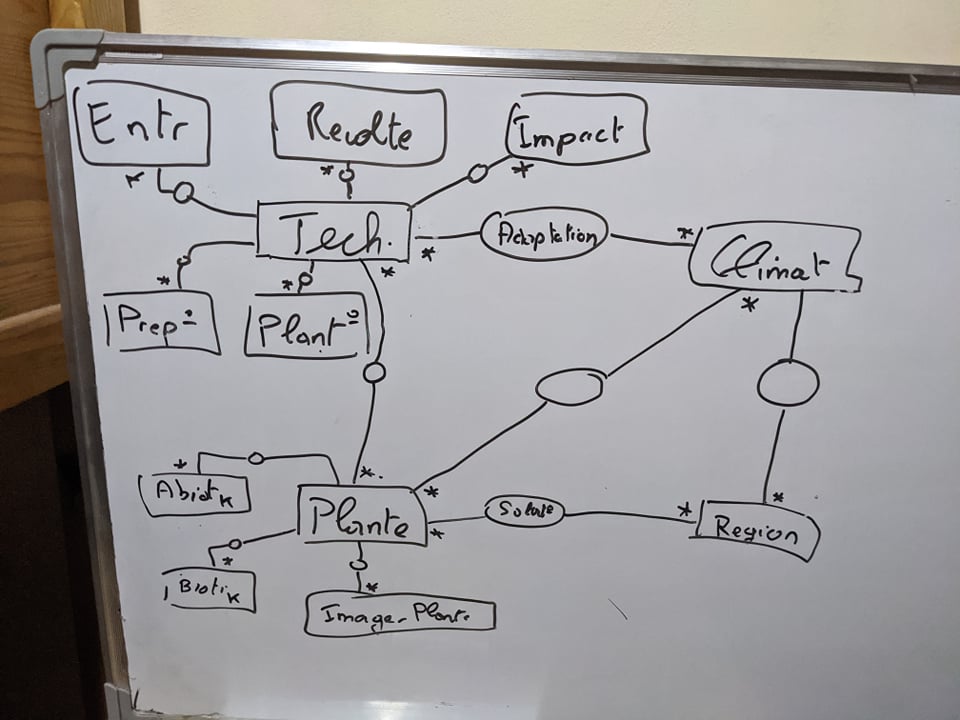 Entr
Recolte
Impact
*
*
*
Tech.
*
Adaptation
*
Climat
*
*
*
Prep°
Plant°
*
*
*.
*
Abiotk
Plante
*
Solste
*
*
Region
*
Biotik
*
Image_Plante